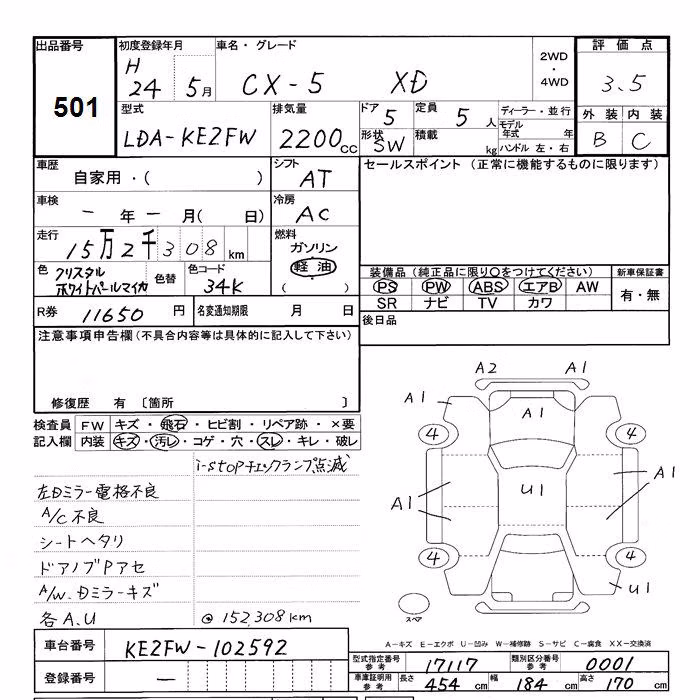 出品番号 501
初度登録年月 H 24 5月
車名・グレード CX-5 XD
2WD・4WD
評価点 3.5
外装 B 内装 C
型式 LDA-KE2FW
排気量 2200cc
ドア 5 形状 SW
定員 5人 積載 kg
ディーラー・並行
モデル年式 年
ハンドル 左・右
車歴 自家用・( )
シフト AT
セールスポイント (正常に機能するものに限ります)
車検 一年一月( 日)
冷房 AC
走行 15万2千308km
燃料 ガソリン 軽油 ( )
色 クリスタルホワイトパールマイカ 色替
色コード 34K
装備品(純正品に限り○をつけてください)
PS PW ABS エアB AW
SR ナビ TV カワ
新車保証書 有・無
R券 11650円 名変通知期限 月 日
後日品
注意事項申告欄(不具合内容等は具体的に記入して下さい)
修復歴 有 〔箇所 〕
検査員記入欄
FW キズ・飛石・ヒビ割・リペア跡・×要
内装 キズ・汚レ・コゲ・穴・スレ・キレ・破レ
i-stopチェックランプ点滅
左Dミラー電格不良
A/C不良
シートヘタリ
ドアノブPアセ
A/W.Dミラーキズ
各A.U
@152,308km
A2 A1
A1 A1
4 4
U1
A1 A1
4 4
U1
スペア
A-キズ E-エクボ U-凹み W-補修跡 S-サビ C-腐食 XX-交換済
車台番号 KE2FW-102592
登録番号 —
型式指定番号参考 17117 類別区分番号参考 0001
車庫証明用参考 長さ 454cm 幅 184cm 高さ 170cm